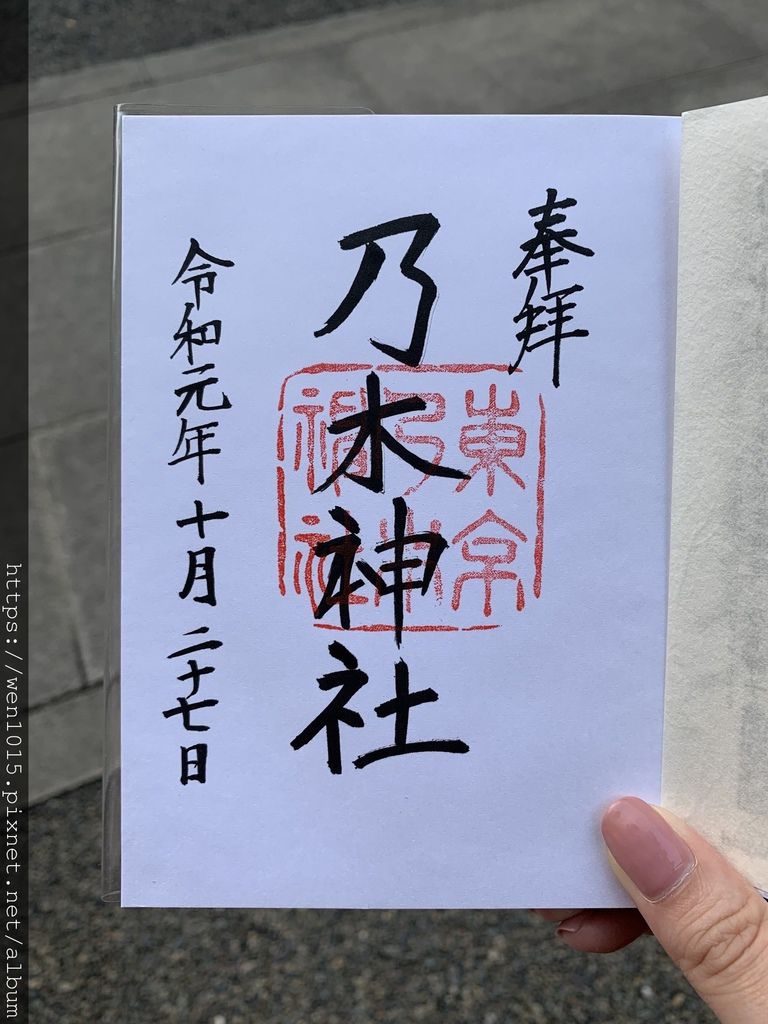 奉拝
乃木神社
東京
乃木
神社
令和元年十月二十七日
https://wen1015.pixnet.net/album